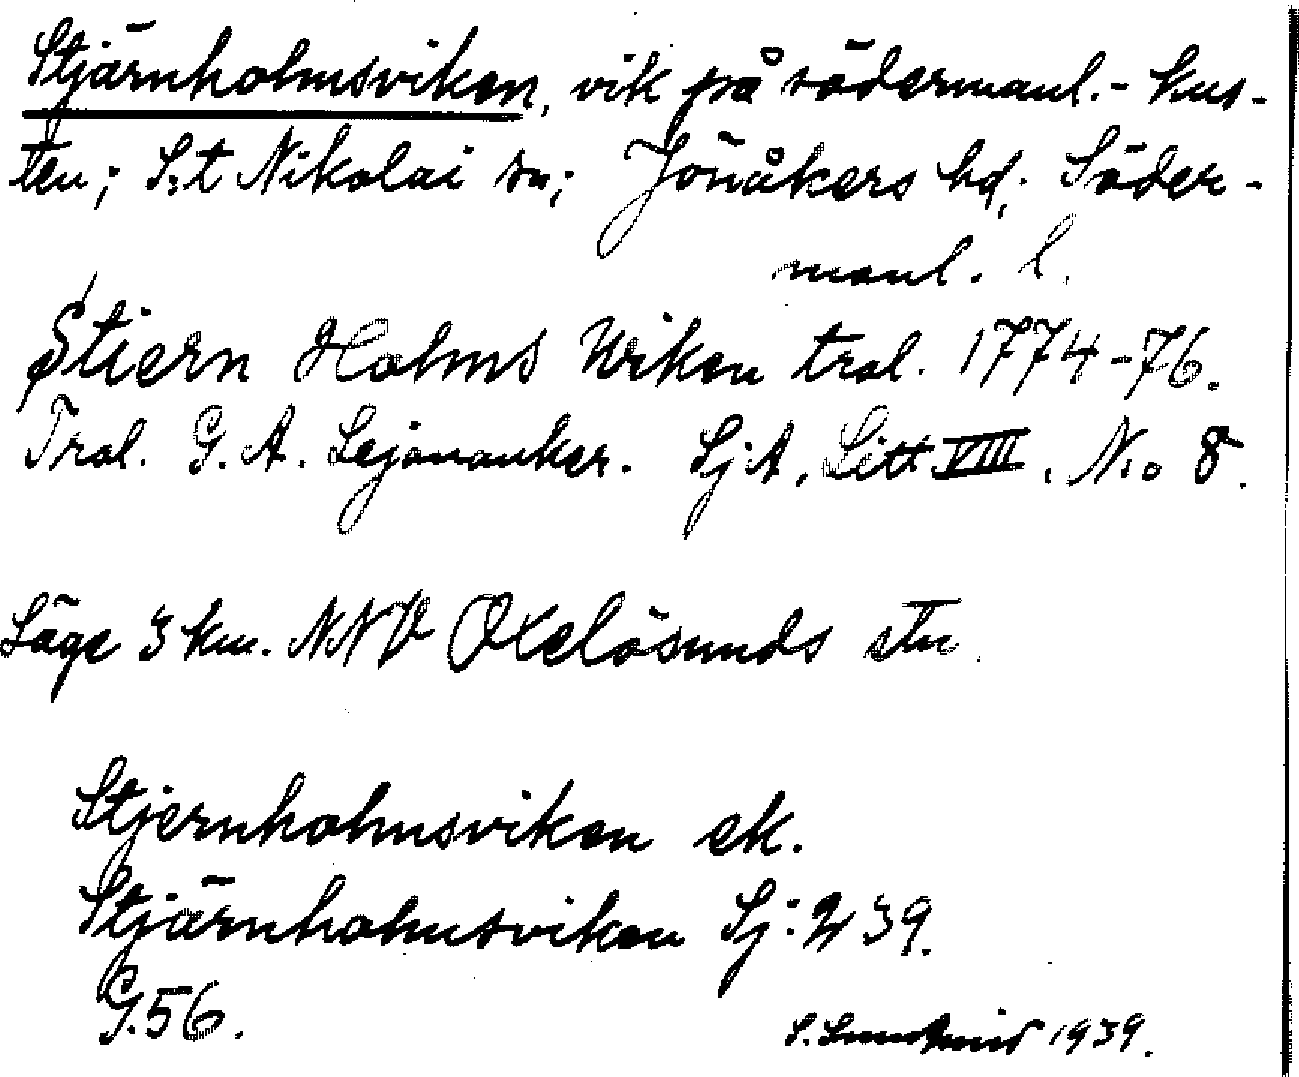 Stjärnholmsviken, vik på södermanl.- kus-
ten; S:t Nikolai sn; Jönåkers hd; Söder-
manl. l.
Stiern Holms Wiken tral. 1774-76.
Tral. G. A. Lejonanker. Sj:A, Litt VIII, N:o 8.
Läge 3 km. NNV Oxelösunds stn.
Stjernholmsviken ek.
Stjärnholmsviken Sj: 239.
G.56.
S. 1939.